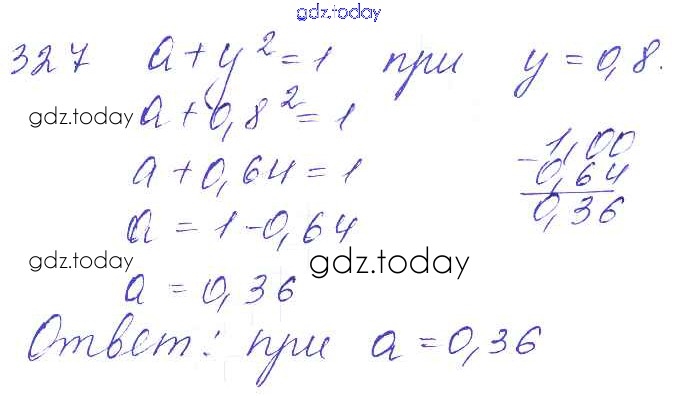 gdz.today
327 a + y² = 1 при y = 0,8.
gdz.today a + 0,8² = 1
a + 0,64 = 1
- 1,00
0,64
0,36
a = 1 - 0,64
gdz.today a = 0,36 gdz.today
Ответ: при a = 0,36